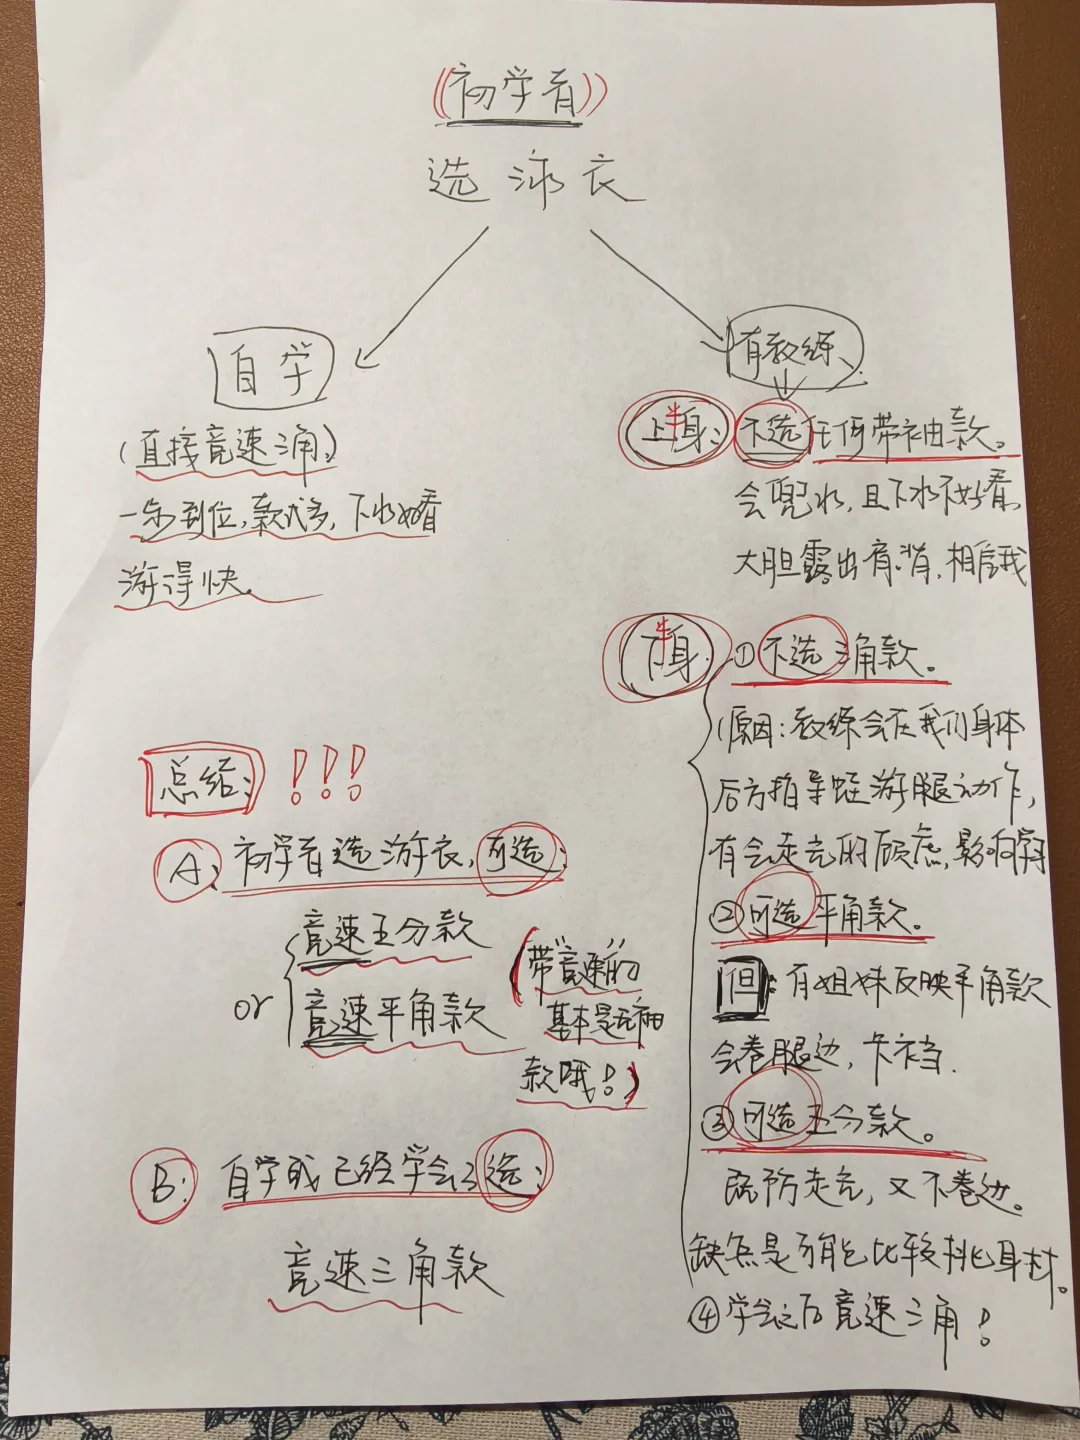 (初学者)
选泳衣
自学
(直接竞速三角)
一步到位,款式多,下水好看
游得快。
有教练
上半身:不选任何带袖款。
会兜水,且下水不好看,
大胆露出肩消,相信我
下半身:①不选三角款。
(原因:教练会在我们身体
后方指导蛙游腿动作,
有会走光的顾虑,影响学习
②可选平角款。
但:有姐妹反映平角款
会卷腿边,卡裆.
③可选五分款。
既防走光,又不卷边。
缺点是可能比较挑身材。
④学会之后竞速三角!
总结:!!!
A:初学者选游衣,可选:
竞速五分款
or 竞速平角款
(带"竞速"的
基本是无袖
款哦!)
B:自学或已经学会了选:
竞速三角款